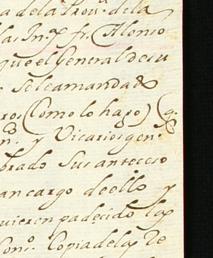 a dela Prouª. dela
las Yn.s fr. Alonso
que el General desu
se le amanda do
ro, (Como lo hago) (q.
n.s y Vicarios gen.s
brado Sus anteces
an cargo de ello y
uieren padecido las
Conº. Copia de la Re